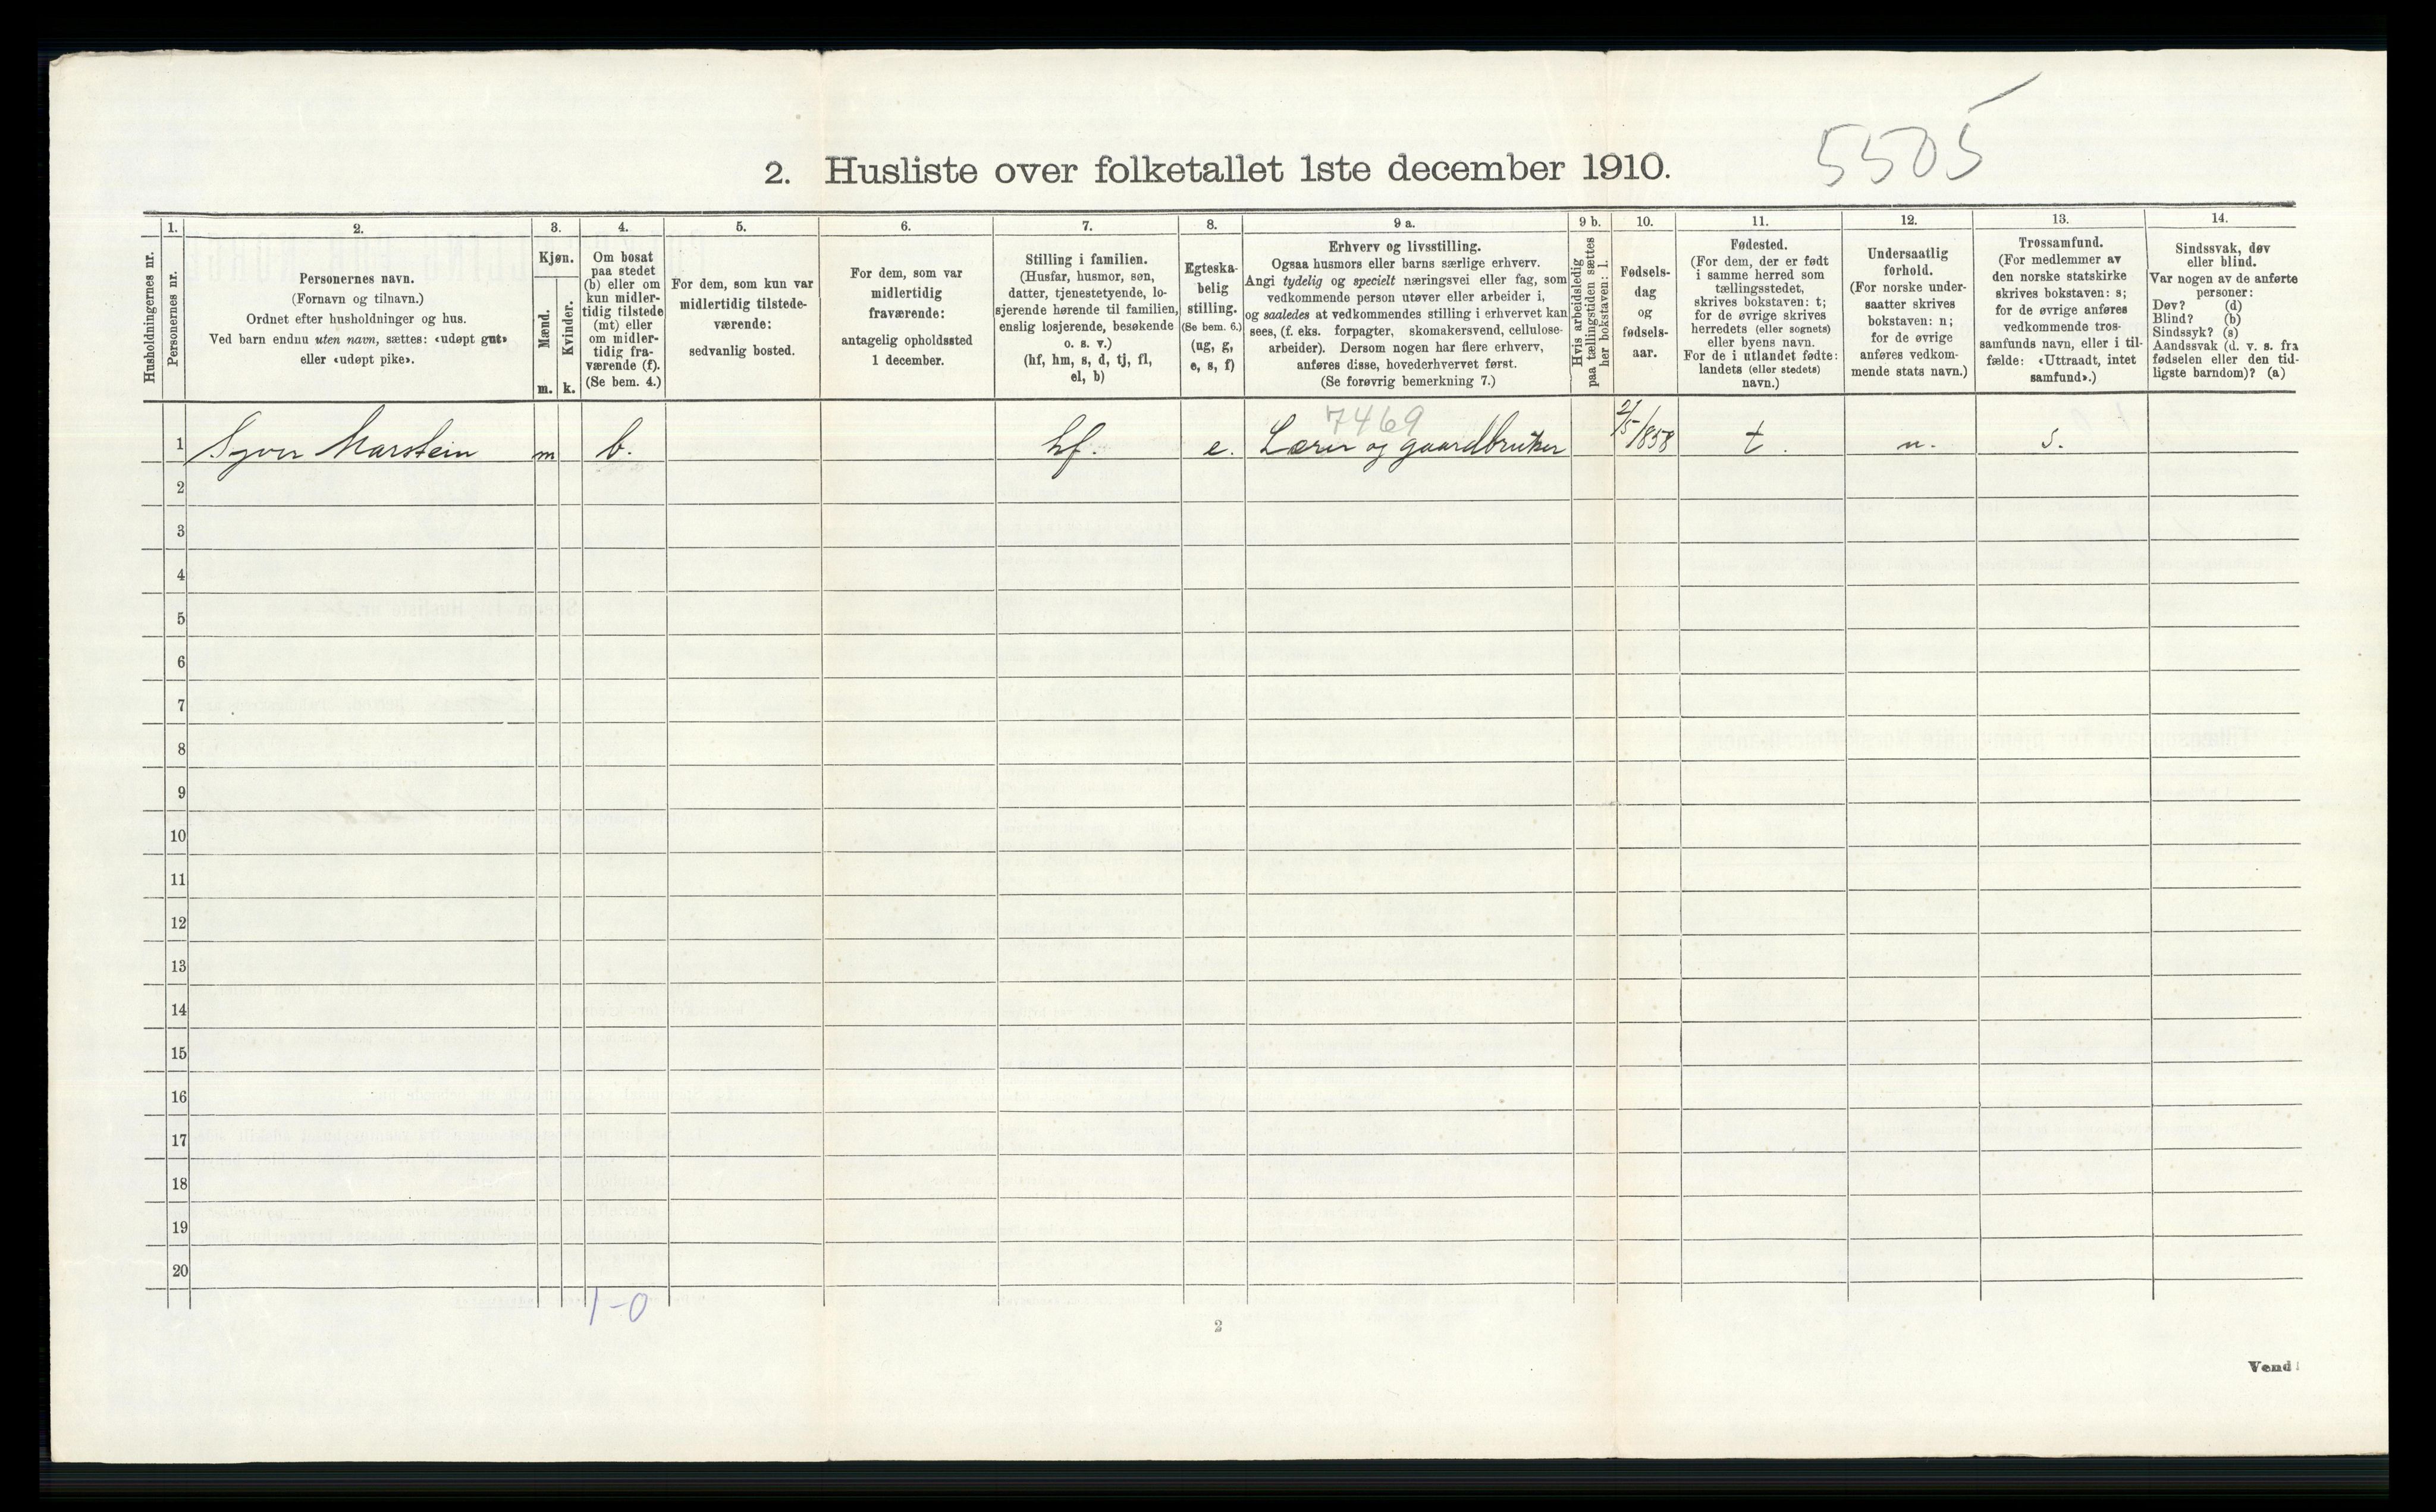 5505
2. Husliste over folketallet 1ste december 1910.
Husholdningernes nr.
1.
Personernes nr.
2.
Personernes navn.
(Fornavn og tilnavn.)
Ordnet efter husholdninger og hus.
Ved barn endnu uten navn, sættes: «udøpt gut»
eller «udøpt pike».
3.
Kjøn.
Mænd.
Kvinder.
m. k.
4.
Om bosat
paa stedet
(b) eller om
kun midler-
tidig tilstede
(mt) eller
om midler-
tidig fra-
værende (f).
(Se bem. 4.)
5.
For dem, som kun var
midlertidig tilstede-
værende:
sedvanlig bosted.
6.
For dem, som var
midlertidig
fraværende:
antagelig opholdssted
1 december.
7.
Stilling i familien.
(Husfar, husmor, søn,
datter, tjenestetyende, lo-
sjerende hørende til familien,
enslig losjerende, besøkende
o. s. v.)
(hf, hm, s, d, tj, fl,
el, b)
8.
Egteska-
belig
stilling.
(Se bem. 6.)
(ug, g,
e, s, f)
9 a.
Erhverv og livsstilling.
Ogsaa husmors eller barns særlige erhverv.
Angi tydelig og specielt næringsvei eller fag, som
vedkommende person utøver eller arbeider i,
og saaledes at vedkommendes stilling i erhvervet kan
sees, (f. eks. forpagter, skomakersvend, cellulose-
arbeider). Dersom nogen har flere erhverv,
anføres disse, hovederhvervet først.
(Se forøvrig bemerkning 7.)
9 b.
Hvis arbeidsledig
paa tællingstiden sættes
her bokstaven: l.
10.
Fødsels-
dag
og
fødsels-
aar.
11.
Fødested.
(For dem, der er født
i samme herred som
tællingsstedet,
skrives bokstaven: t;
for de øvrige skrives
herredets (eller sognets)
eller byens navn.
For de i utlandet fødte:
landets (eller stedets)
navn.)
12.
Undersaatlig
forhold.
(For norske under-
saatter skrives
bokstaven: n;
for de øvrige
anføres vedkom-
mende stats navn.)
13.
Trossamfund.
(For medlemmer av
den norske statskirke
skrives bokstaven: s;
for de øvrige anføres
vedkommende tros-
samfunds navn, eller i til-
fælde: «Uttraadt, intet
samfund».)
14.
Sindssvak, døv
eller blind.
Var nogen av de anførte
personer:
Døv? (d)
Blind? (b)
Sindssyk? (s)
Aandssvak (d. v. s. fra
fødselen eller den tid-
ligste barndom)? (a)
7469
1 Syver Marstein m b. hf. e. Lærer og gaardbruker 2/5/1858 t. n. s.
2
3
4
5
6
7
8
9
10
11
12
13
14
15
16
17
18
19
20
1-0
2
Vend!